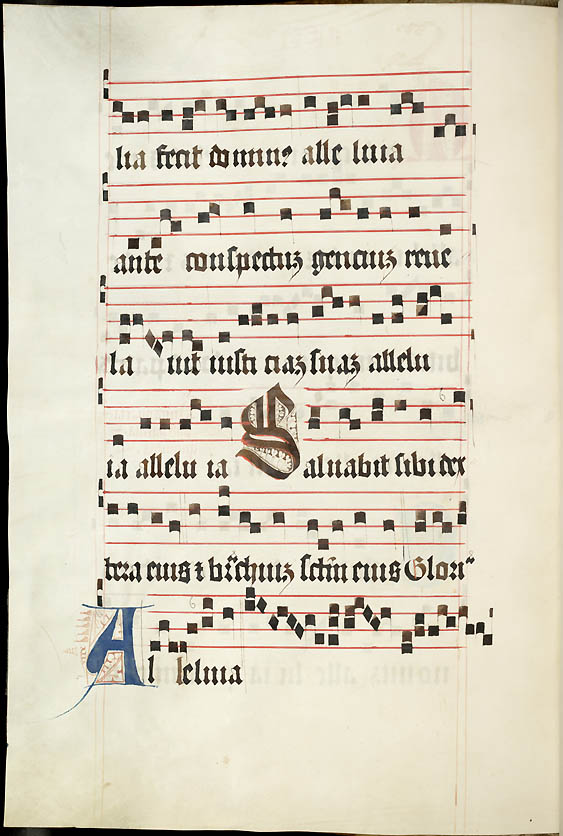 lia fecit domin9 alle luia
ante conspectuz genciuz reue
la uit iusti ciaz suaz allelu
ia allelu ia Saluabit sibi dex
tera eius ⁊ br̄chiuz sctm̄ eius Glori
Al leluia